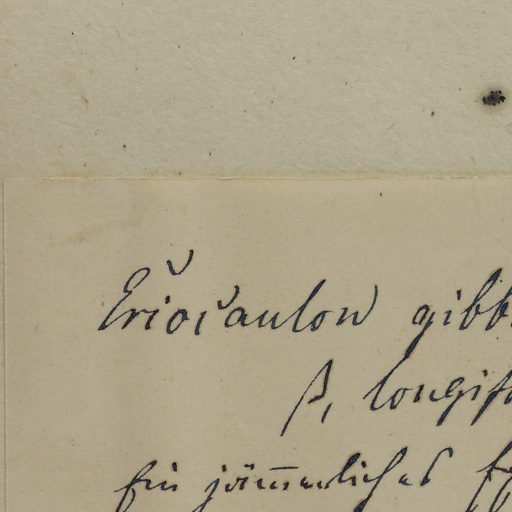 Eriocaulon gibb
β, longif
Ein jämmerliches